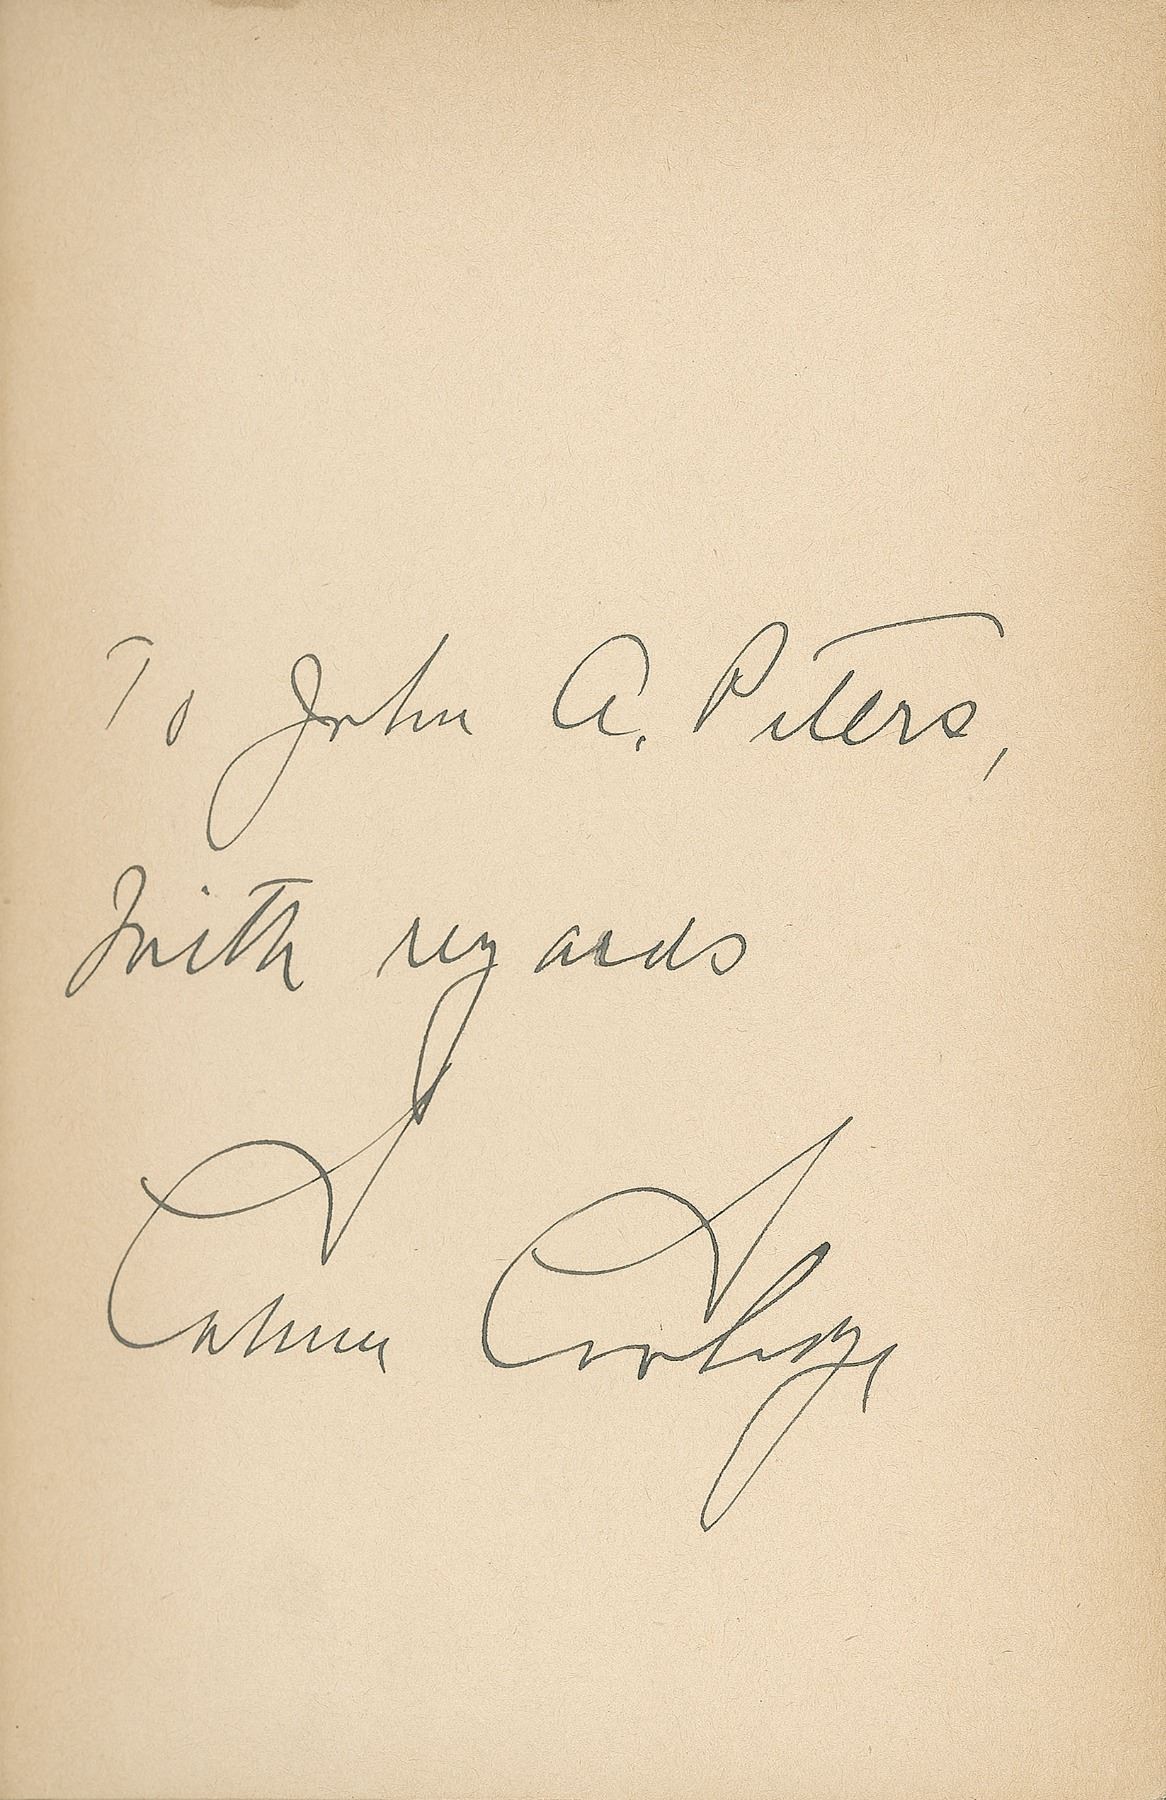 To John A. Peters,
With regards
Calvin Coolidge